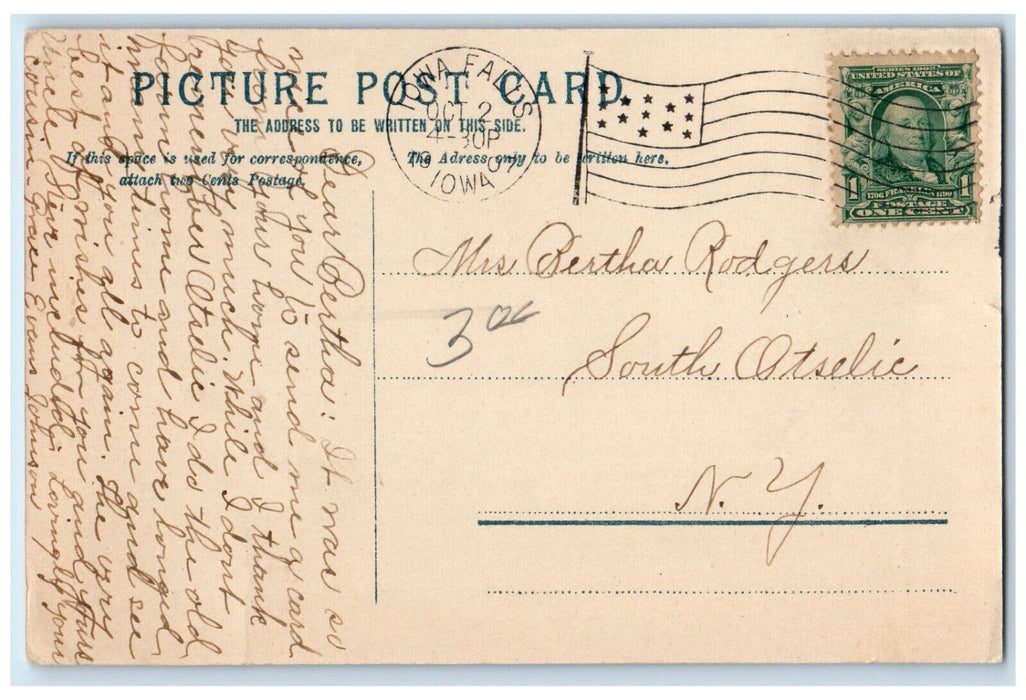 PICTURE POST CARD
THE ADDRESS TO BE WRITTEN ON THIS SIDE.
If this space is used for correspondence,
attach two Cents Postage.
The Adress only to be written here.
IOWA FALLS
OCT 2
4-30P
IOWA
SERIES 1902
UNITED STATES OF
AMERICA
1 1706 FRANKLIN 1790 1
POSTAGE
ONE CENT
Mrs Bertha Rodgers
South Otselic
N. Y.
3
Dear Bertha: It was so
nice of you to send me a card
from your home and I thank
you very much. While I dont
remember Otselic I do the old
Rodgers home and have longed
many times to come and see
it and you all again. The very
best of wishes for you and yours
Uncle included. Lovingly your
cousin Grace Evans Johnson